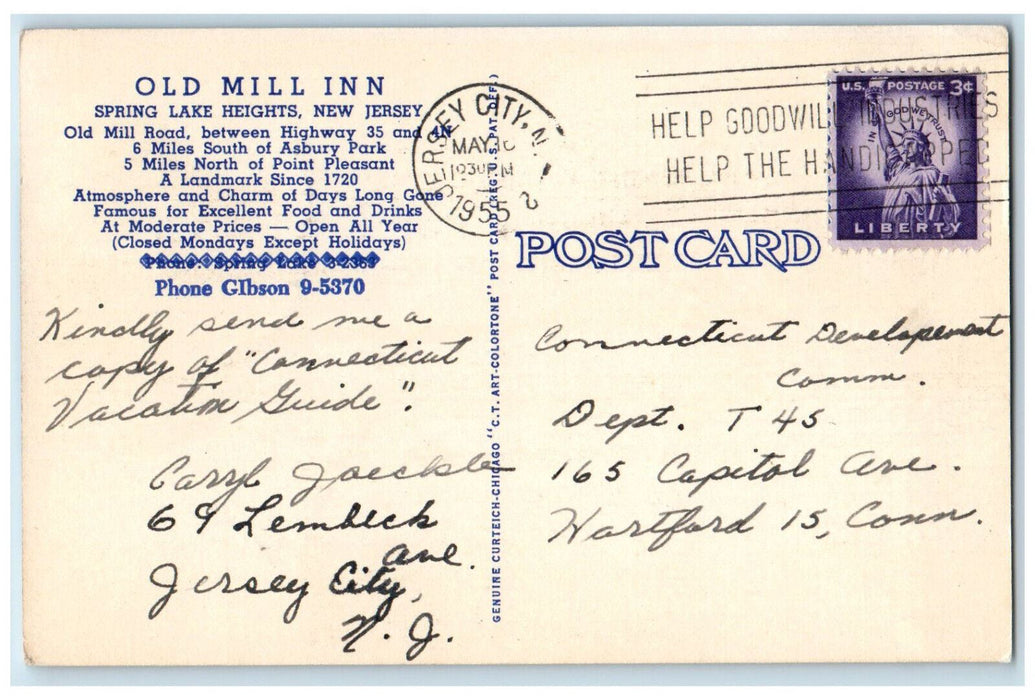 OLD MILL INN
SPRING LAKE HEIGHTS, NEW JERSEY
Old Mill Road, between Highway 35 and 4N
6 Miles South of Asbury Park
5 Miles North of Point Pleasant
A Landmark Since 1720
Atmosphere and Charm of Days Long Gone
Famous for Excellent Food and Drinks
At Moderate Prices — Open All Year
(Closed Mondays Except Holidays)
Phone: Spring Lake 3-2363
Phone GIbson 9-5370
Kindly send me a
copy of "Connecticut
Vacation Guide".
Caryl Jaeckle
69 Lembeck
Ave.
Jersey City,
N. J.
GENUINE CURTEICH-CHICAGO "C.T. ART-COLORTONE" POST CARD (REG. U.S. PAT. OFF.)
JERSEY CITY, N.
MAY
1230 M
1955
2
HELP GOODWILL INDUSTRIES
HELP THE HANDICAPPE
U.S. POSTAGE 3¢
IN GOD WE TRUST
LIBERTY
POST CARD
Connecticut Developement
Comm.
Dept. T 45
165 Capitol Ave.
Hartford 15, Conn.